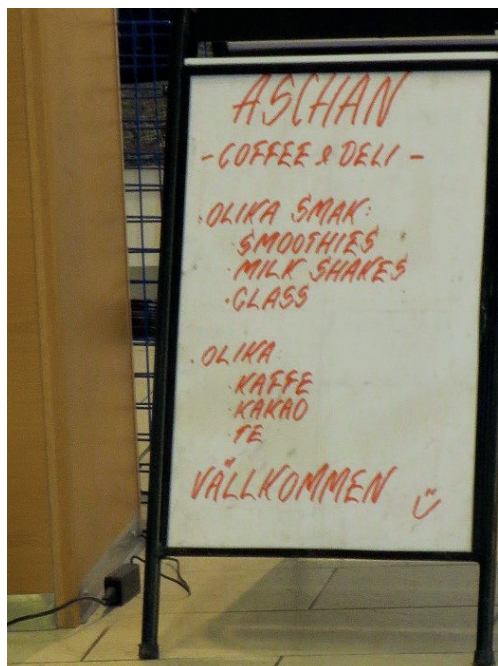 ASCHAN
- COFFEE & DELI -
· OLIKA SMAK:
· SMOOTHIES
· MILK SHAKES
· GLASS
· OLIKA
KAFFE
KAKAO
TE
VÄLLKOMMEN ü